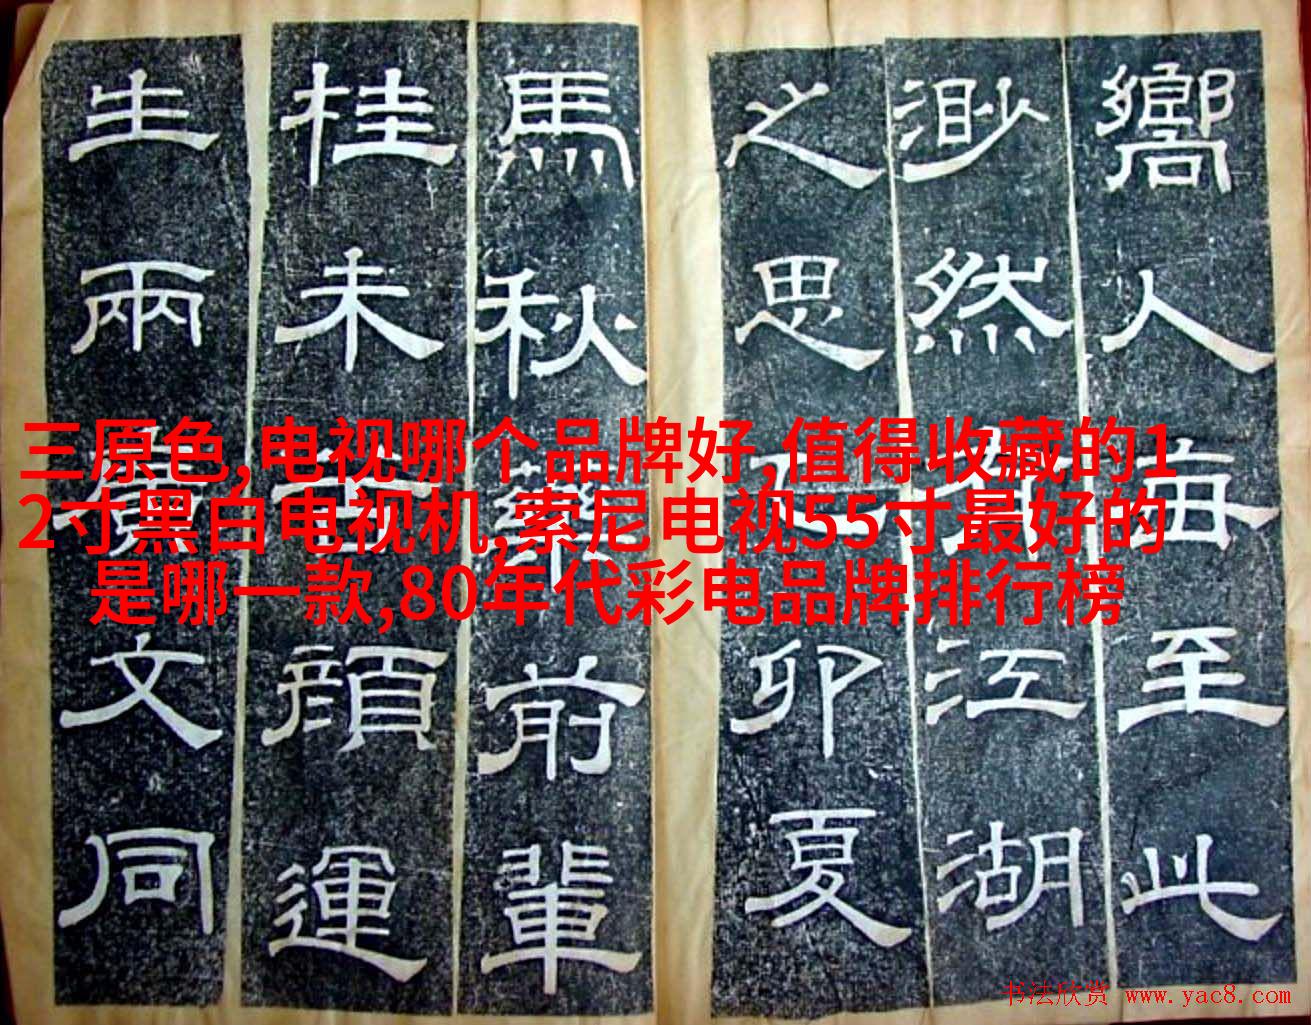 三原色,电视哪个品牌好,值得收藏的1
2寸黑白电视机,索尼电视55寸最好的
是哪一款,80年代彩电品牌排行榜
嚮人海至此
渺然江湖
之思卯夏
馬秋藥前輩
桂未顏運
生兩廣文同
书法欣赏 www.yac8.com